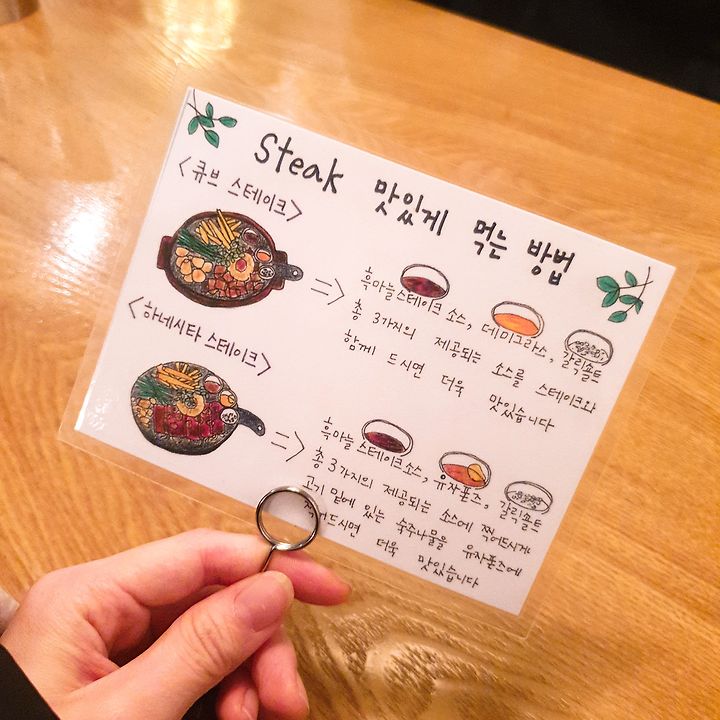 Steak 맛있게 먹는 방법
<큐브 스테이크>
흑마늘스테이크 소스, 데미그라스, 갈릭솔트
총 3가지의 제공되는 소스를 스테이크와
함께 드시면 더욱 맛있습니다
<하네시타 스테이크>
흑마늘 스테이크소스, 유자폰즈, 갈릭솔트
총 3가지의 제공되는 소스에 찍어드시게
고기 밑에 있는 숙주나물을 유자폰즈에
찍어드시면 더욱 맛있습니다